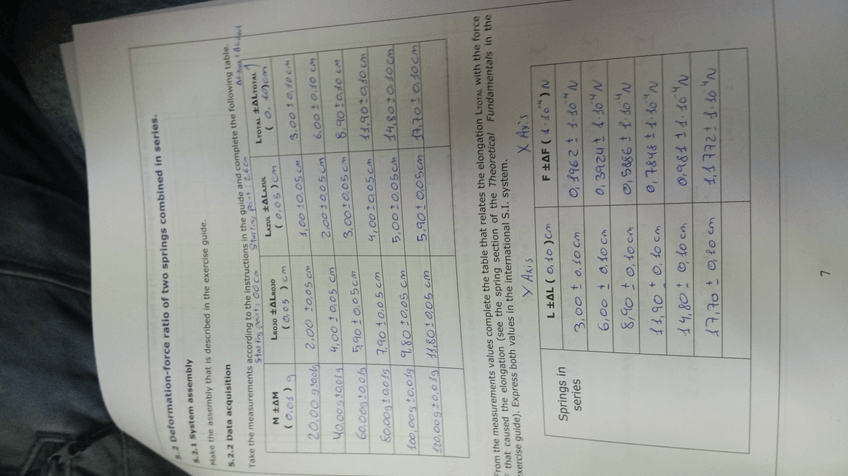 5.2 Deformation-force ratio of two springs combined in series.
5.2.1 System assembly
Make the assembly that is described in the exercise guide.
5.2.2 Data acquisition
Take the measurements according to the instructions in the guide and complete the following table.
M ±ΔM LROJO ±ΔLROJO LAZUL ±ΔLAZUL LTOTAL ±ΔLTOTAL
(0.01) g (0.05) cm (0.05) cm (0,10) cm
20,00g±0,01g 2,00 ±0,05 cm 1,00 ±0,05 cm 3,00 ± 0,10 cm
40,00g±0,01g 4,00 ± 0,05 cm 2,00 ± 0,05 cm 6,00 ± 0,10 cm
60,00g±0,01g 5,90 ± 0,05 cm 3,00 ± 0,05 cm 8,90 ± 0,10 cm
80,00g±0,01g 7,90 ± 0,05 cm 4,00 ± 0,05 cm 11,90 ± 0,10 cm
100,00g±0,01g 9,80 ± 0,05 cm 5,00 ± 0,05 cm 14,80 ± 0,10 cm
120,00g±0,01g 11,80 ± 0,05 cm 5,90 ± 0,05 cm 17,70 ± 0,10 cm
From the measurements values complete the table that relates the elongation LTOTAL with the force
F that caused the elongation (see the spring section of the Theoretical Fundamentals in the
exercise guide). Express both values in the international S.I. system.
Y Axis X Axis
Springs in series
L ±ΔL ( 0,10 ) cm F ±ΔF ( 1·10⁻⁴ ) N
3,00 ± 0,10 cm 0,1962 ± 1·10⁻⁴ N
6,00 ± 0,10 cm 0,3924 ± 1·10⁻⁴ N
8,90 ± 0,10 cm 0,5886 ± 1·10⁻⁴ N
11,90 ± 0,10 cm 0,7848 ± 1·10⁻⁴ N
14,80 ± 0,10 cm 0,981 ± 1·10⁻⁴ N
17,70 ± 0,10 cm 1,1772 ± 1·10⁻⁴ N
7